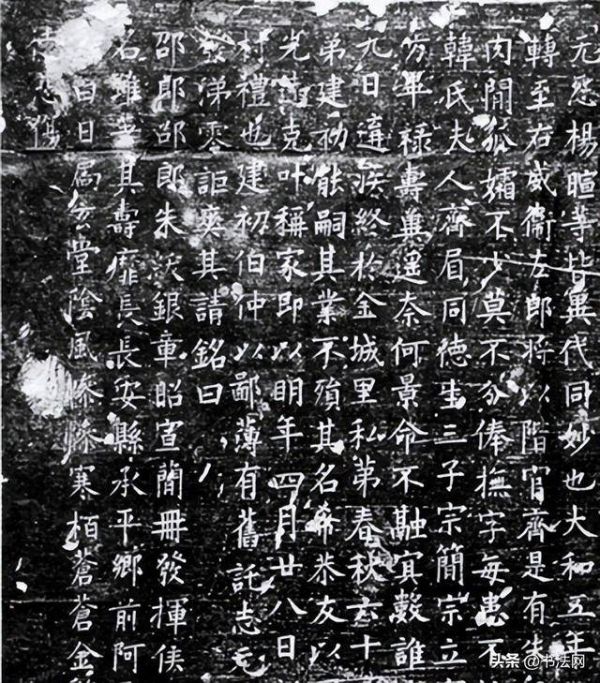 元慈楊暄等皆異代同妙也大和五年
轉至右威衛左郎將以階官齊是有朱
肉閒孤孀不少莫不分俸撫字每患不
韓氏夫人齊眉同德生三子宗簡宗立
方畢祿壽冀遥奈何景命不融冥數誰
九日遘疾終於金城里私第春秋六十
弟建初能嗣其業不殞其名希恭友以
光遠克叶稱家即以明年四月廿八日
村禮也建初伯仲以鄙薄有舊託志元
發涕零詎爽其請銘曰
邵郎邵郎朱紱銀章昭宣蕳冊發揮侯
名雖著其壽靡長長安縣承平鄉前阿
白日扃玄堂陰風慘慘寒栢蒼蒼金
悲傷
头条 @书法网